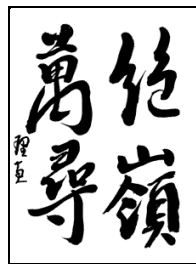 絶嶺
萬尋